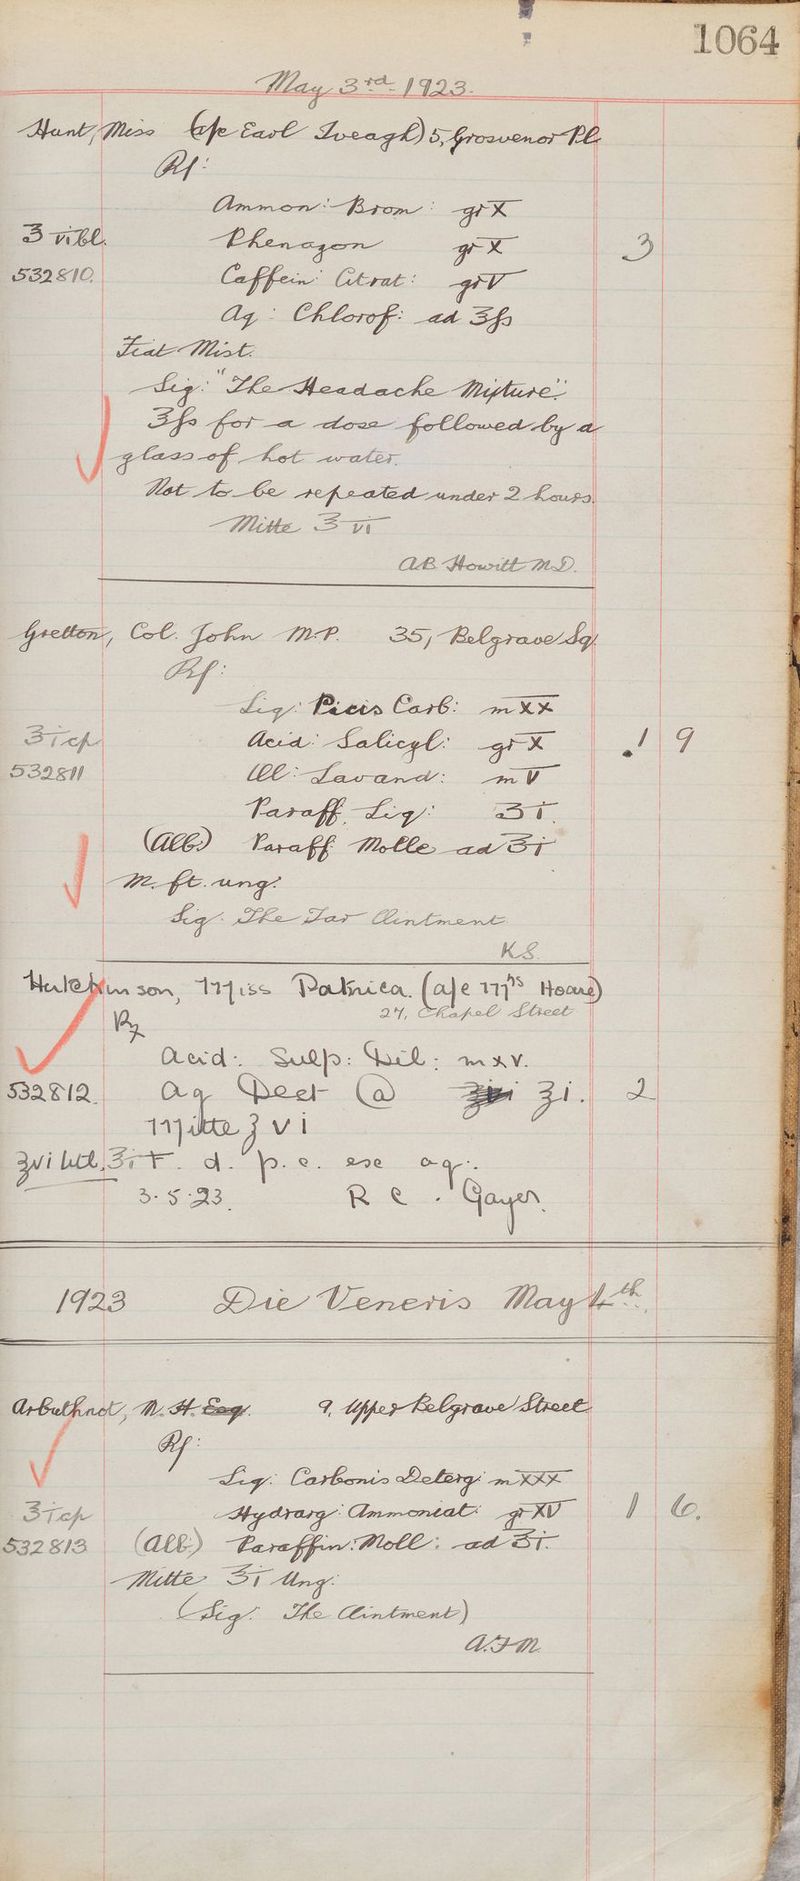 1064
May 3rd 1923.
Hunt, Miss (a/c Earl Iveagh) 5, Grosvenor Pl
Rx:
Ammon: Brom: gr X
℥vi bl. Phenazon gr X 3
532810. Caffein: Citrat: gr V
Aq: Chlorof: ad ℥fs
Fiat Mist.
Sig: "The Headache Mixture".
℥fs for a dose followed by a
glass of hot water.
Not to be repeated under 2 hours.
Mitte ℥vi
AB Howitt M.D.
Gretton, Col. John M.P. 35, Belgrave Sq.
Rx:
Liq: Picis Carb: m XX
℥i cp Acid: Salicyl: gr X 1 9
532811 Ol: Lavand: m V
Paraff. Liq: ʒi.
(Alb:) Paraff Molle ad ℥i
M. ft. ung:
Sig. The Tar Ointment
K.S.
Hutchinson, Miss Patricia. (a/c Mrs Hoare)
27, Chapel Street
Rx
Acid: Sulp: Dil: m xv.
532812. Aq Dest @ ʒi. 2
Mitte ℥vi
℥vi bttl. t. d. p. c. exc aq:.
3.5.23. R C. Gayer.
1923 Die Veneris May 4th
Arbuthnot, M. H. Esq. 9, Upper Belgrave Street
Rx:
Liq: Carbonis Deterg: m XXX
℥i cp Hydrarg: Ammoniat: gr XV 1 6.
532813 (Alb:) Paraffin: Moll: ad ℥i.
Mitte ℥i Ung:
(Sig: The Ointment)
A.F.M.